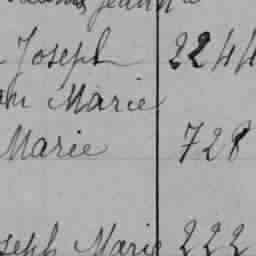 Jeanne
Joseph 2244
Marie
Marie 728
Joseph Marie 222